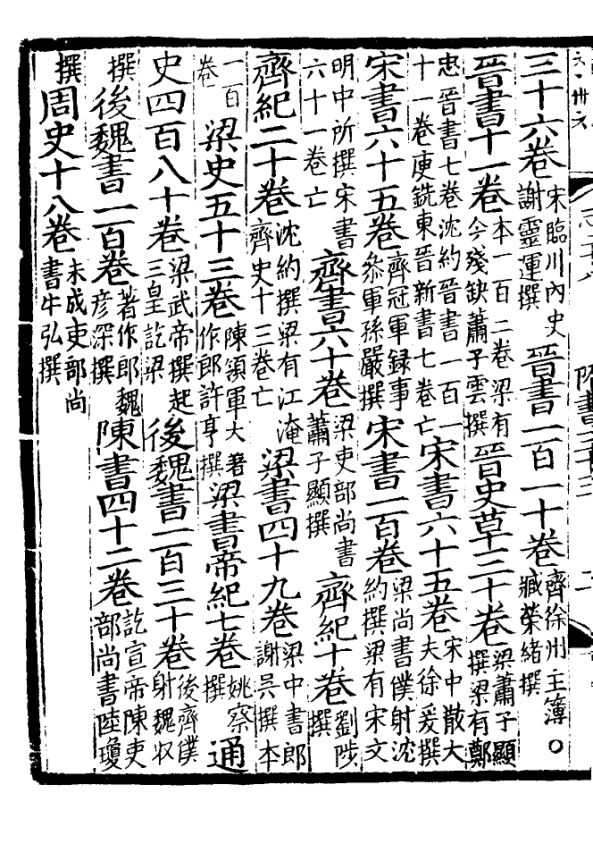 三十六卷宋臨川內史謝靈運撰晉書一百一十卷齊徐州主簿臧榮緒撰○
晉書十一卷本一百二卷梁有今殘缺蕭子雲撰晉史草三十卷梁蕭子顯撰梁有鄭
忠晉書七卷沈約晉書一百一十一卷庾銑東晉新書七卷亡宋書六十五卷宋中散大夫徐爰撰
宋書六十五卷齊冠軍録事參軍孫嚴撰宋書一百卷梁尚書僕射沈約撰梁有宋文
明中所撰宋書六十一卷亡齊書六十卷梁吏部尚書蕭子顯撰齊紀十卷劉陟撰
齊紀二十卷沈約撰梁有江淹齊史十三卷亡梁書四十九卷梁中書郎謝吳撰本
一百卷梁史五十三卷陳領軍大著作郎許亨撰梁書帝紀七卷姚察撰通
史四百八十卷梁武帝撰起三皇訖梁後魏書一百三十卷後齊僕射魏収
撰後魏書一百卷著作郎魏彦深撰陳書四十二卷訖宣帝陳吏部尚書陸瓊
撰周史十八卷未成吏部尚書牛弘撰